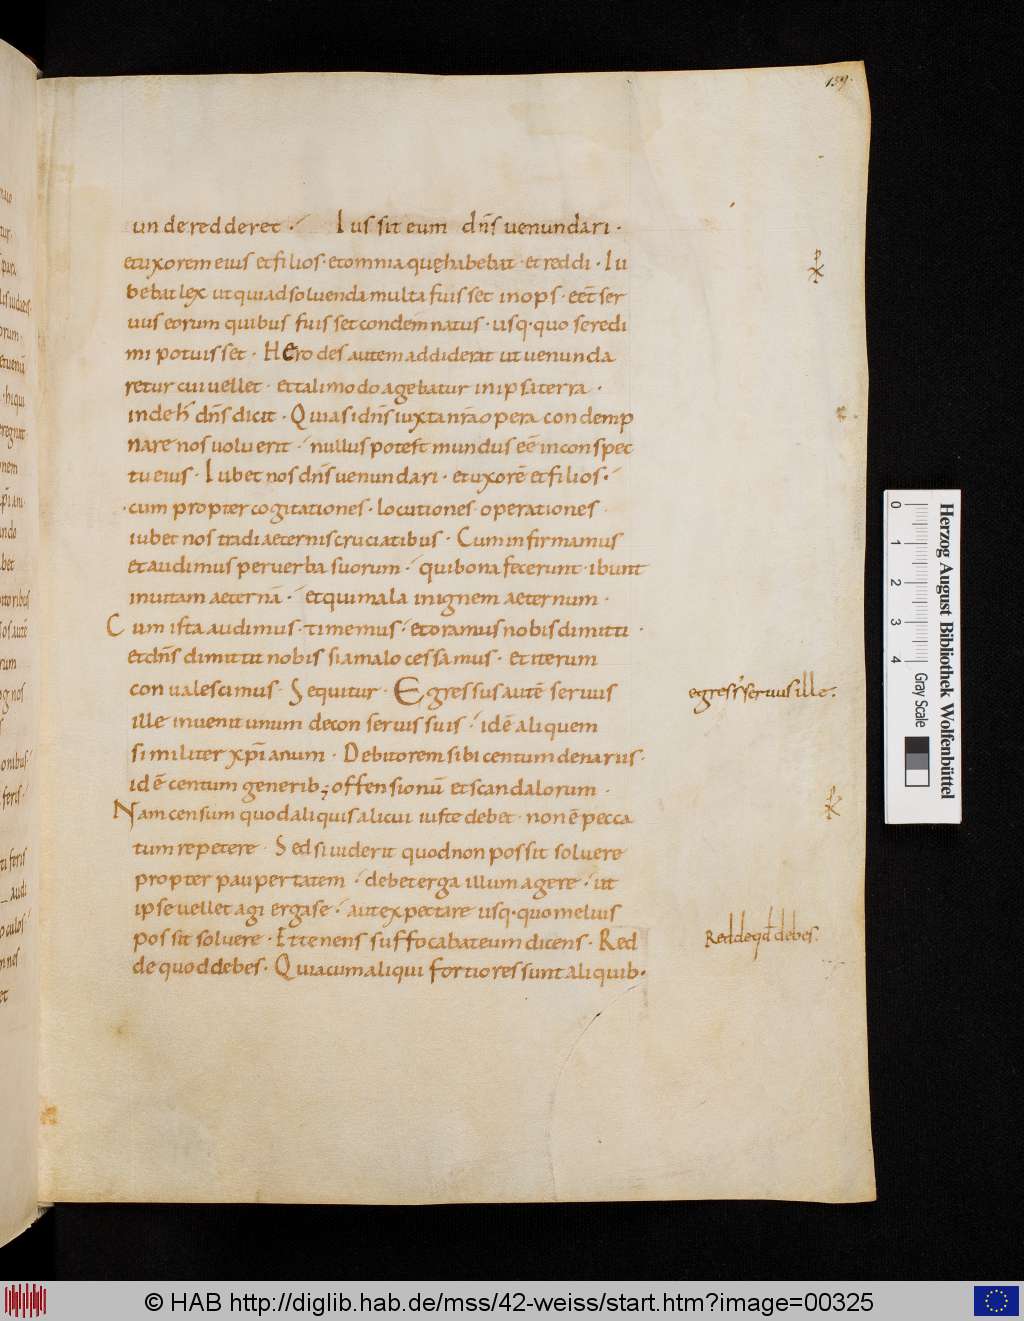 159.
unde redderet · Iussit eum dn̄s uenundari ·
et uxorem eius et filios · et omnia que habebat · et reddi · Iu
bebat lex ut qui ad soluenda multa fuisset inops · eēt ser
uus eorum quibus fuisset condemnatus · usq· quo se redi
mi potuisset · Herodes autem addiderat ut uenunda
retur cui uellet · et tali modo agebatur in ipsa terra ·
inde h̄ dn̄s dicit · Quia si dn̄s iuxta nr̄a opera condemp
nare nos uoluerit · nullus potest mundus eē in conspec
tu eius · Iubet nos dn̄s uenundari · et uxorē et filios ·
· cum propter cogitationes · locutiones · operationes
iubet nos tradi aeternis cruciatibus · Cum infirmamus
et audimus per uerba suorum · qui bona fecerunt · ibunt
in uitam aeternā · et qui mala in ignem aeternum ·
Cum ista audimus · timemus · et oramus nobis dimitti ·
et dn̄s dimittit nobis si a malo cessamus · et iterum
conualescimus · Sequitur · Egressus autē seruus
ille inuenit unum de conseruis suis · id ē aliquem
similiter xp̄ianum · Debitorem sibi centum denarius ·
id ē centum generib; offensionū et scandalorum ·
Nam censum quod aliquis alicui iuste debet · non ē pecca
tum repetere · Sed si uiderit quod non possit soluere
propter paupertatem · debet erga illum agere · ut
ipse uellet agi erga se · aut expectare usq· quo melius
possit soluere · Et tenens suffocabat eum dicens · Red
de quod debes · Quia cum aliqui fortiores sunt aliquib·
egress' seruus ille.
Redde qd debes.
Herzog August Bibliothek Wolfenbüttel
0 1 2 3 4
Gray Scale
© HAB http://diglib.hab.de/mss/42-weiss/start.htm?image=00325